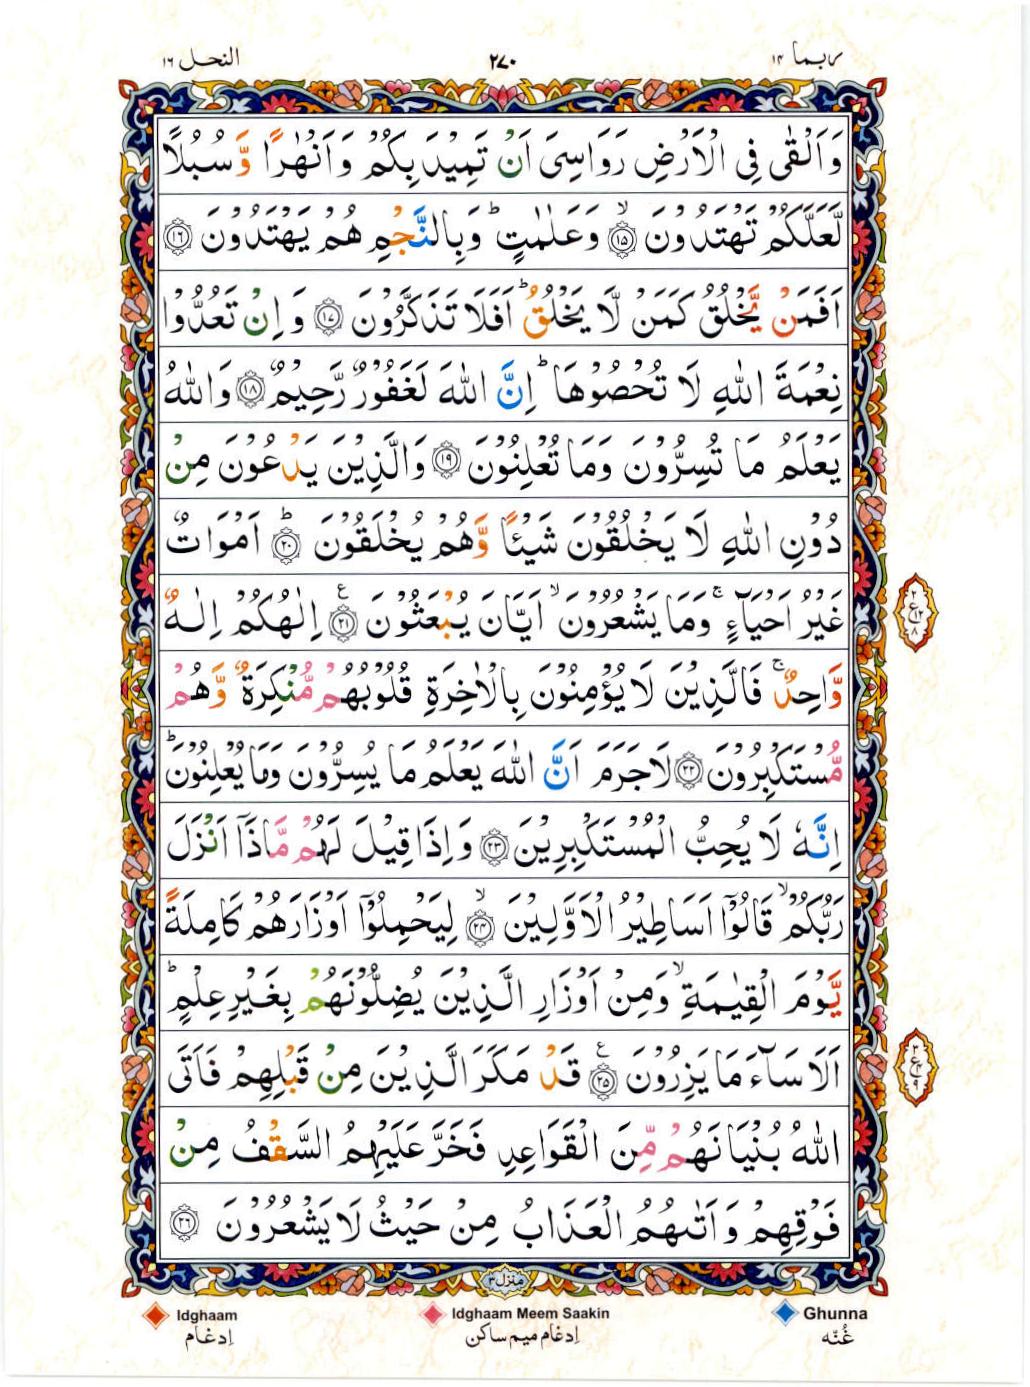 ربما ۱۴
۲۷۰
النحل ۱۶
وَاَلْقٰى فِى الْاَرْضِ رَوَاسِىَ اَنْ تَمِيْدَ بِكُمْ وَاَنْهٰرًا وَّسُبُلًا
لَّعَلَّكُمْ تَهْتَدُوْنَ ۙ﴿۱۵﴾ وَعَلٰمٰتٍ ؕ وَبِالنَّجْمِ هُمْ يَهْتَدُوْنَ ﴿۱۶﴾
اَفَمَنْ يَّخْلُقُ كَمَنْ لَّا يَخْلُقُ ؕ اَفَلَا تَذَكَّرُوْنَ ﴿۱۷﴾ وَاِنْ تَعُدُّوْا
نِعْمَةَ اللّٰهِ لَا تُحْصُوْهَا ؕ اِنَّ اللّٰهَ لَغَفُوْرٌ رَّحِيْمٌ ﴿۱۸﴾ وَاللّٰهُ
يَعْلَمُ مَا تُسِرُّوْنَ وَمَا تُعْلِنُوْنَ ﴿۱۹﴾ وَالَّذِيْنَ يَدْعُوْنَ مِنْ
دُوْنِ اللّٰهِ لَا يَخْلُقُوْنَ شَيْـًٔا وَّهُمْ يُخْلَقُوْنَ ؕ﴿۲۰﴾ اَمْوَاتٌ
غَيْرُ اَحْيَآءٍ ۚ وَمَا يَشْعُرُوْنَ ۙ اَيَّانَ يُبْعَثُوْنَ ﴿۲۱﴾ ع اِلٰهُكُمْ اِلٰهٌ
وَّاحِدٌ ۚ فَالَّذِيْنَ لَا يُؤْمِنُوْنَ بِالْاٰخِرَةِ قُلُوْبُهُمْ مُّنْكِرَةٌ وَّهُمْ
مُّسْتَكْبِرُوْنَ ﴿۲۲﴾ لَاجَرَمَ اَنَّ اللّٰهَ يَعْلَمُ مَا يُسِرُّوْنَ وَمَا يُعْلِنُوْنَ ؕ
اِنَّهٗ لَا يُحِبُّ الْمُسْتَكْبِرِيْنَ ﴿۲۳﴾ وَاِذَا قِيْلَ لَهُمْ مَّاذَاۤ اَنْزَلَ
رَبُّكُمْ ۙ قَالُوْۤا اَسَاطِيْرُ الْاَوَّلِيْنَ ۙ﴿۲۴﴾ لِيَحْمِلُوْۤا اَوْزَارَهُمْ كَامِلَةً
يَّوْمَ الْقِيٰمَةِ ۙ وَمِنْ اَوْزَارِ الَّذِيْنَ يُضِلُّوْنَهُمْ بِغَيْرِ عِلْمٍ ؕ
اَلَا سَآءَ مَا يَزِرُوْنَ ﴿۲۵﴾ ع قَدْ مَكَرَ الَّذِيْنَ مِنْ قَبْلِهِمْ فَاَتَى
اللّٰهُ بُنْيَانَهُمْ مِّنَ الْقَوَاعِدِ فَخَرَّ عَلَيْهِمُ السَّقْفُ مِنْ
فَوْقِهِمْ وَاَتٰىهُمُ الْعَذَابُ مِنْ حَيْثُ لَا يَشْعُرُوْنَ ﴿۲۶﴾
منزل ۳
Idghaam
ادغام
Idghaam Meem Saakin
ادغام ميم ساكن
Ghunna
غُنّه